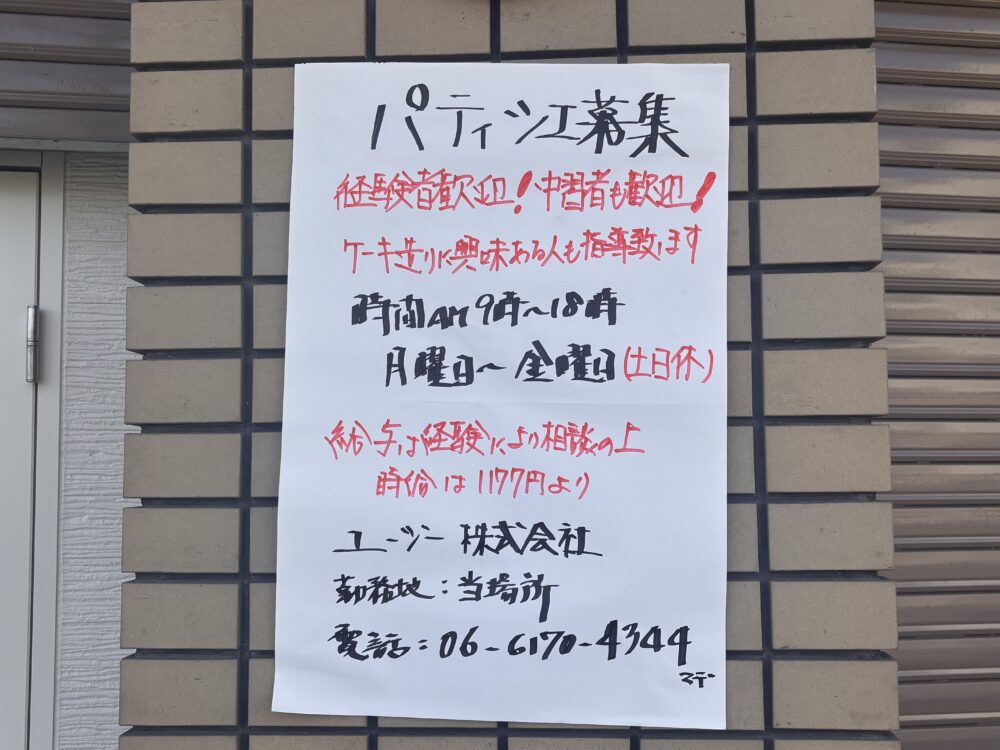 パティシエ募集
経験者歓迎！中習者も歓迎！
ケーキ造りに興味ある人も指導致します
時間AM9時～18時
月曜日～金曜日(土日休)
給与は経験により相談の上
時給は1177円より
ユーシー株式会社
勤務地：当場所
電話：06-6170-4344
マデ